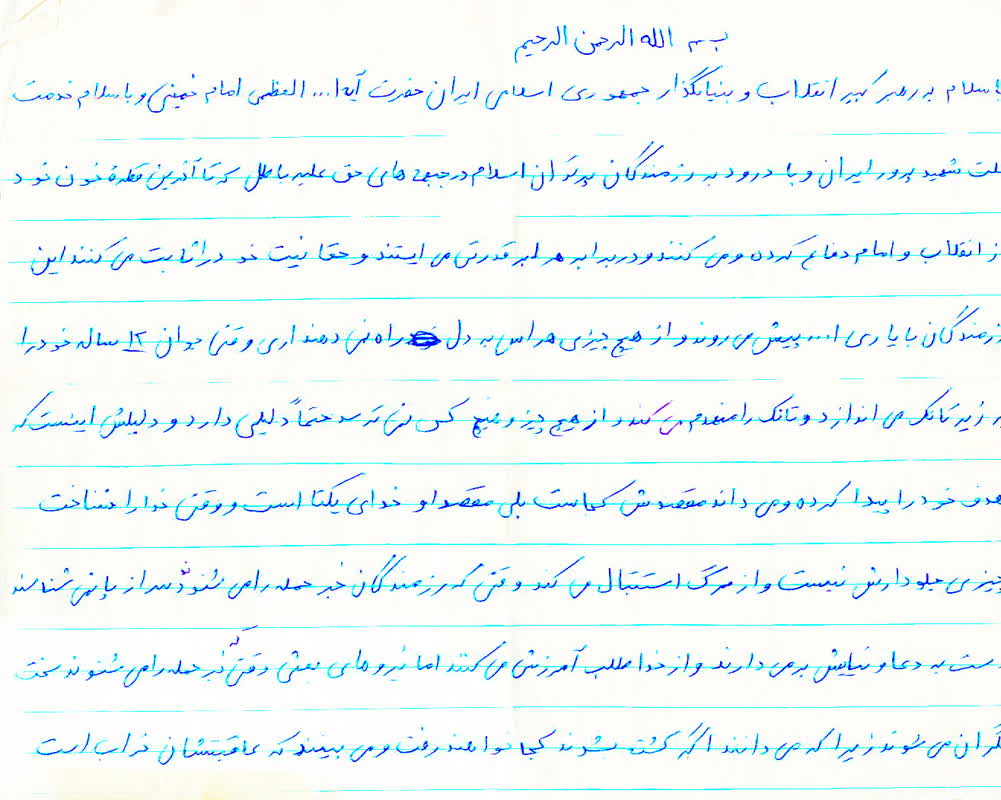 بسم الله الرحمن الرحیم
با سلام به رهبر کبیر انقلاب و بنیانگذار جمهوری اسلامی ایران حضرت آیه ا... العظمی امام خمینی و با سلام خدمت
ملت شهید پرور ایران و با درود به رزمندگان پرتوان اسلام در جبهه های حق علیه باطل که تا آخرین قطره خون خود
از انقلاب و امام دفاع کرده و می کنند و در برابر هر ابر قدرتی می ایستند و حقانیت خود را ثابت می کنند این
رزمندگان با یاری ا... پیش می روند و از هیچ چیزی هراس به دل راه نمی دهند آری وقتی جوان ۱۲ ساله خود را
به زیر تانک می اندازد و تانک را منهدم می کند و از هیچ چیز و هیچ کس نمی ترسد حتماً دلیلی دارد و دلیلش اینست که
هدف خود را پیدا کرده و می داند مقصدش کجاست بلی مقصد او خدای یکتا است و وقتی خدا را شناخت
چیزی جلودارش نیست و از مرگ استقبال می کند وقتی که رزمندگان خبر حمله را می شنوند سر از پا نمی شناسند
دست به دعا و نیایش بر می دارند و از خدا طلب آمرزش می کنند اما نیروهای بعثی وقتی که خبر حمله را می شنوند سخت
نگران می شوند زیرا که می دانند اگر کشته بشوند کجا خواهند رفت و می بینند که عاقبتشان خراب است